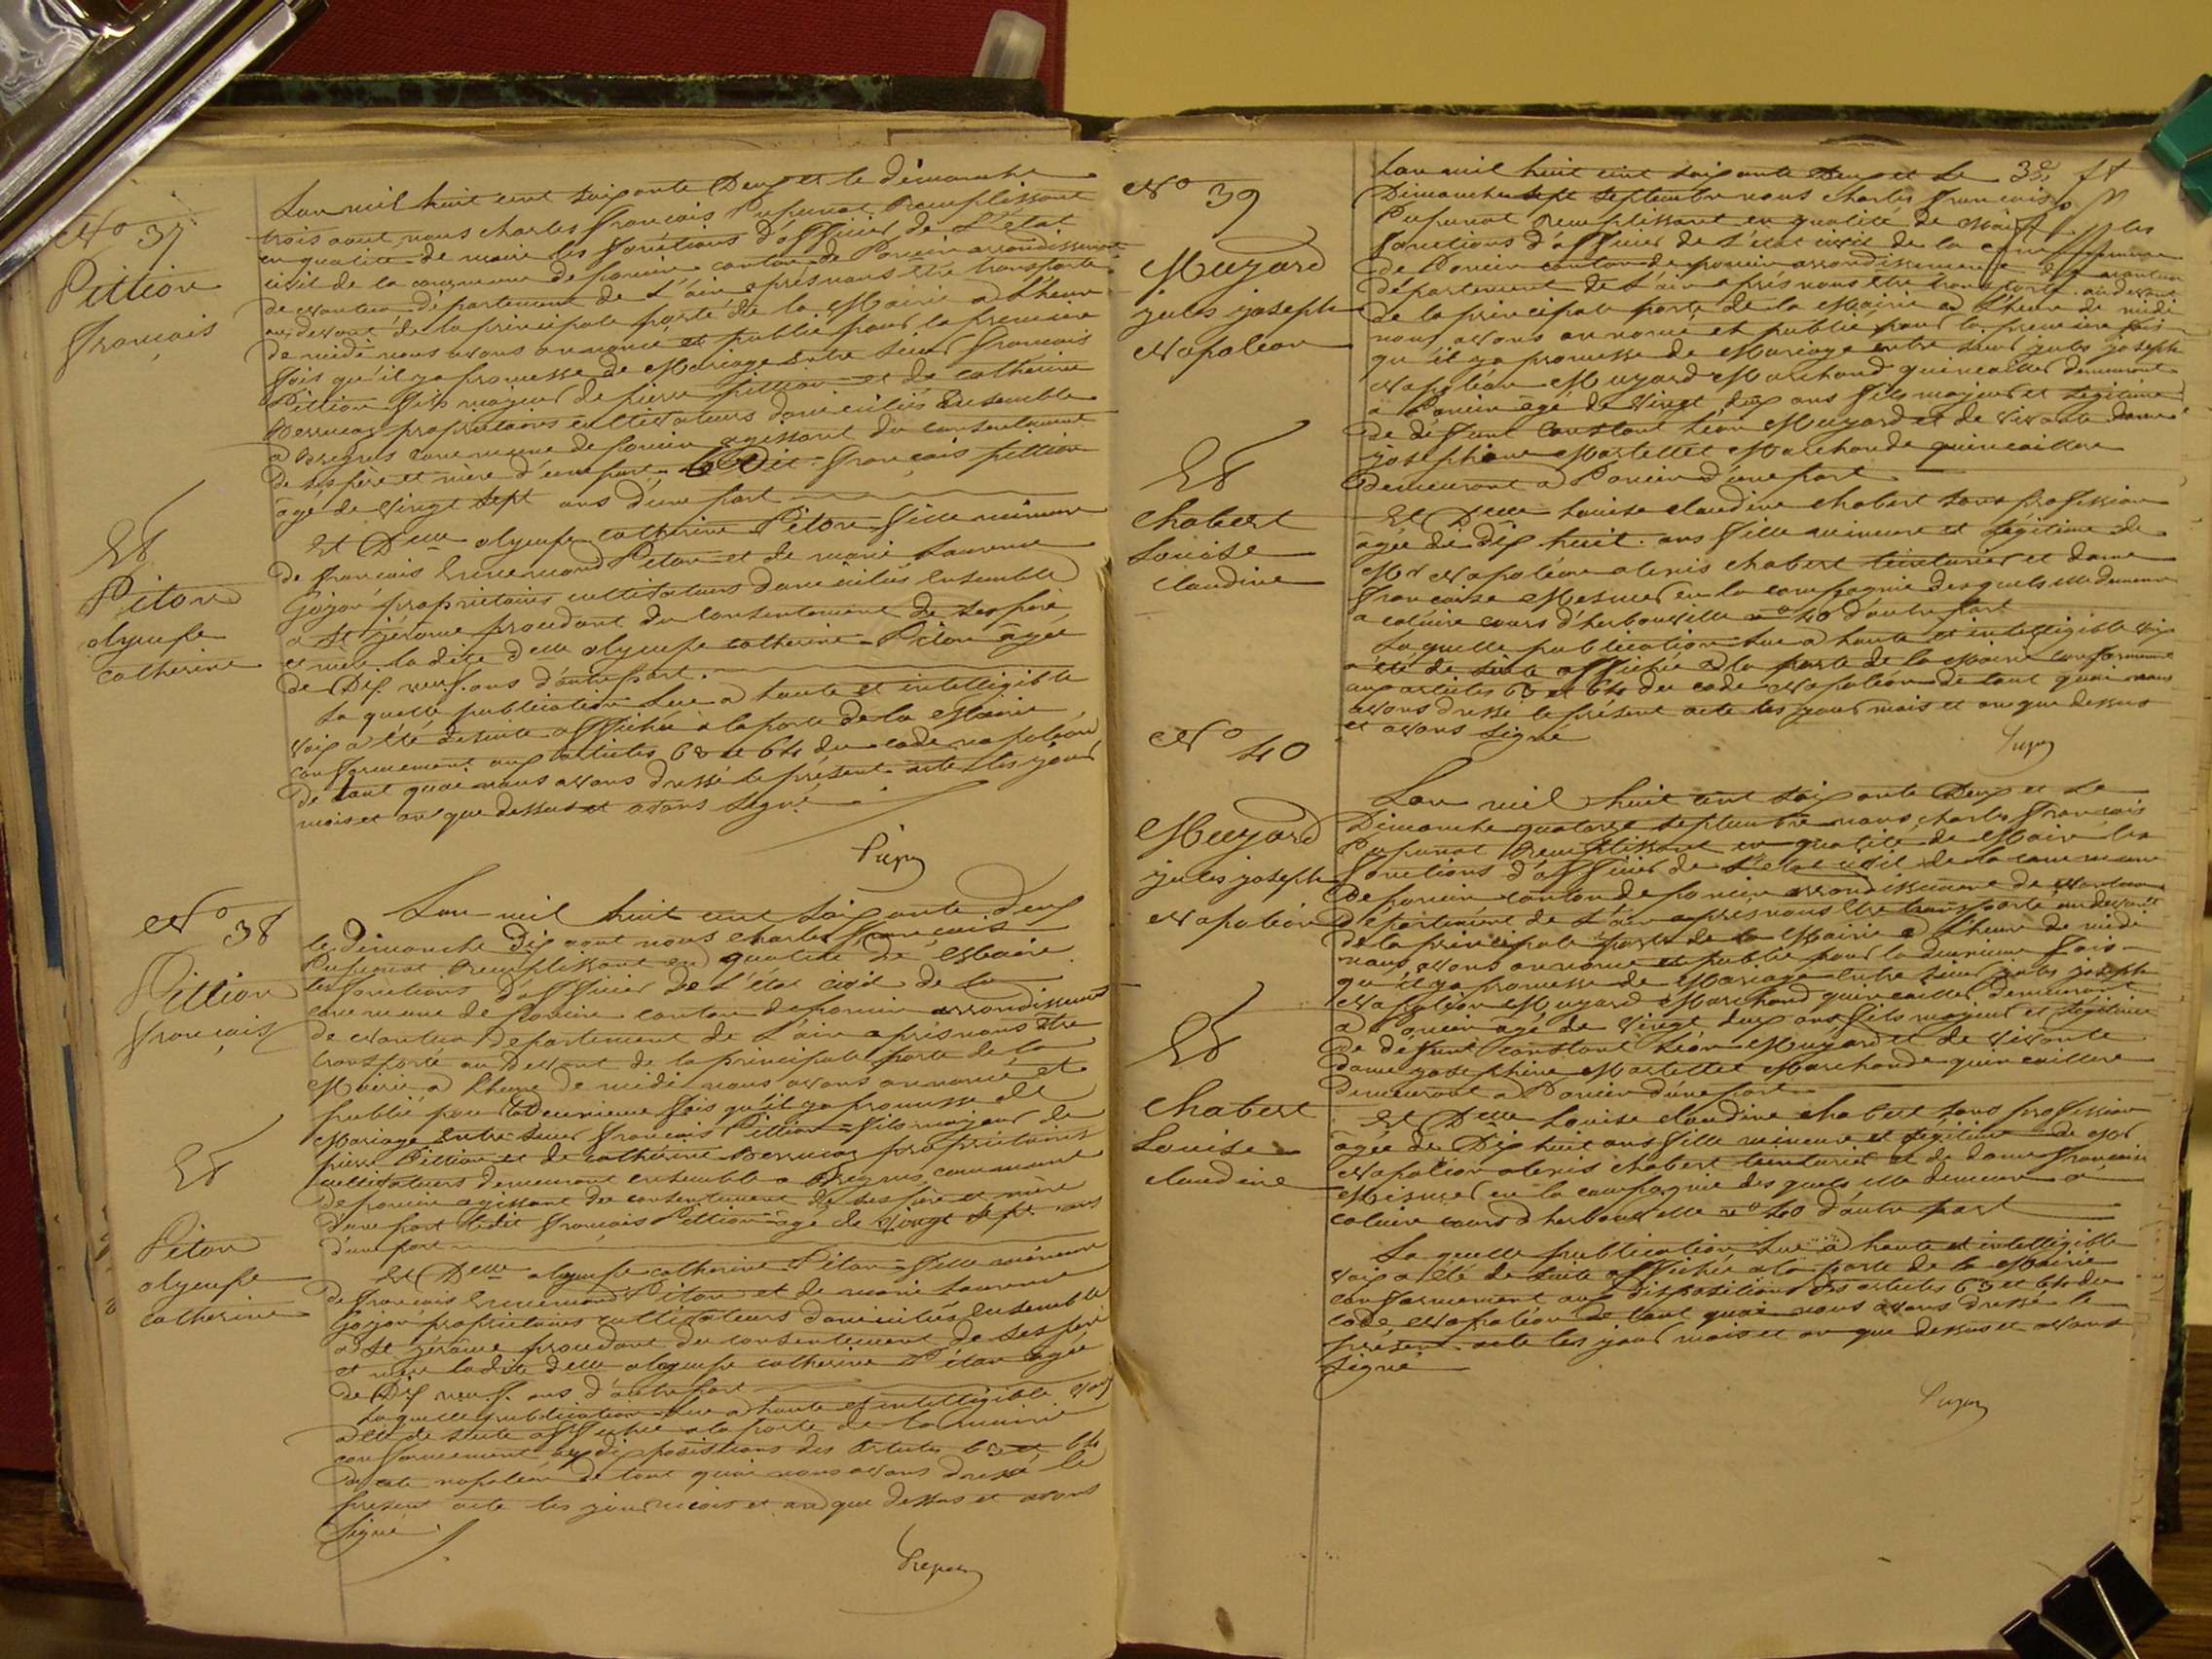 No 37
Pittion
français
Et
Piton
olympe
catherine
L'an mil huit cent soixante Deux et le dimanche
trois aout nous charles françois Pupunat Remplissant
en qualité de maire les fonctions d'officier de L'état
civil de la commune de poncin canton de Poncin arrondissement
de nantua département de L'ain après nous être transporté
au devant de la principale porte de la Mairie a L'heure
de midi nous avons annoncé et publié pour la premiere
fois qu'il y a promesse de Mariage entre sieur français
Pittion fils majeur de pierre pittion et de catherine
propriétaires cultivateurs domiciliés Ensemble
a Bregnes commune de poncin agissant du consentement
de ses père et mère d'une part Le Dit français pittion
âgé de vingt sept ans d'une part
Et Delle olympe catherine Piton fille mineure
de françois Piton et de marie Laurence
Goyon propriétaires cultivateurs domiciliés Ensemble
a St jérôme procedant du consentement de ses père
et mère la dite delle olympe catherine Piton âgée
de Dix neuf ans d'autre part.
La quelle publication Lue a haute et intelligible
voix a été de suite affichée à la porte de la Mairie
conformement aux articles 63 et 64 du code napoléon
de tout quoi nous avons dressé le présent acte les jour
mois et an que dessus et avons signé
No 38
Pittion
français
Et
Piton
olympe
catherine
L'an mil huit cent soixante deux
le dimanche dix aout nous charles françois
Pupunat Remplissant en qualité de Maire
les fonctions d'officier de L'état civil de la
commune de Poncin canton de poncin arrondissement
de nantua département de L'ain après nous être
transporté au devant de la principale porte de la
Mairie a L'heure de midi nous avons annoncé et
publié pour la Deuxieme fois qu'il y a promesse de
Mariage entre sieur français Pittion fils majeur de
pierre Pittion et de catherine propriétaires
cultivateurs demeurant ensemble a Bregnes commune
de poncin agissant du consentement de ses père et mère
d'une part ledit français Pittion âgé de vingt sept ans
d'une part
Et Delle olympe catherine Piton fille mineure
de françois Piton et de marie Laurence
Goyon propriétaires cultivateurs domiciliés Ensemble
a St jérôme procedant du consentement de ses père
et mère ladite delle olympe catherine Piton âgée
de Dix neuf ans d'autre part
Laquelle publication Lue a haute et intelligible voix
a été de suite affichée a la porte de la mairie
conformement aux dispositions des articles 63 et 64
du code napoléon de tout quoi nous avons dressé le
présent acte les jour mois et an que dessus et avons
signé
No 39
Muzard
jules joseph
Napoléon
Et
Chabert
Louise
claudine
L'an mil huit cent soixante Deux et Le
Dimanche sept septembre nous charles français
Pupunat Remplissant en qualité de Maire les
fonctions d'officier de L'état civil de la commune
de Poncin canton de poncin arrondissement de nantua
département de L'ain après nous être transporté au devant
de la principale porte de la Mairie a L'heure de midi
nous avons annoncé et publié pour la premiere fois
qu'il y a promesse de Mariage entre sieur jules joseph
Napoléon Muzard Marchand quincailler demeurant
a Poncin âgé de vingt deux ans fils majeur et légitime
de défunt Constant Léon Muzard et de vivante dame
joséphine Martellet Marchande quincaillere
Demeurant a Poncin d'une part
Et Delle Louise claudine chabert sans profession
âgée de dix huit ans fille mineure et légitime de
Mr Napoléon alexis chabert teinturier et dame
française Mesmer en la compagnie desquels elle demeure
a caluire cours d'herbouville no 40 d'autre part
Laquelle publication Lue a haute et intelligible voix
a été de suite affichée a la porte de la Mairie conformement
aux articles 63 et 64 du code Napoléon de tout quoi nous
avons dressé le présent acte les jour mois et an que dessus
et avons signé
No 40
Muzard
jules joseph
Napoléon
Et
Chabert
Louise
claudine
L'an mil huit cent soixante Deux et Le
Dimanche quatorze septembre nous charles français
Pupunat Remplissant en qualité de Maire les
fonctions d'officier de L'état civil de la commune
de poncin canton de poncin arrondissement de nantua
Département de L'ain après nous être transporté au devant
de la principale porte de la Mairie a L'heure de midi
nous avons annoncé et publié pour la deuxieme fois
qu'il y a promesse de Mariage entre sieur jules joseph
Napoléon Muzard Marchand quincailler demeurant
a Poncin âgé de vingt deux ans fils majeur et légitime
de défunt constant Léon Muzard et de vivante
dame joséphine Martellet Marchande quincaillere
demeurant a Poncin d'une part
Et Delle Louise claudine chabert sans profession
âgée de Dix huit ans fille mineure et légitime de Mr
Napoléon alexis chabert teinturier et de dame française
Mesmer en la compagnie des quels elle demeure a
caluire cours d'herbouville no 40 d'autre part
La quelle publication Lue a haute et intelligible
voix a été de suite affichée a la porte de la Mairie
conformement aux dispositions des articles 63 et 64 du
code Napoléon de tout quoi nous avons dressé le
présent acte les jour mois et an que dessus et avons
signé